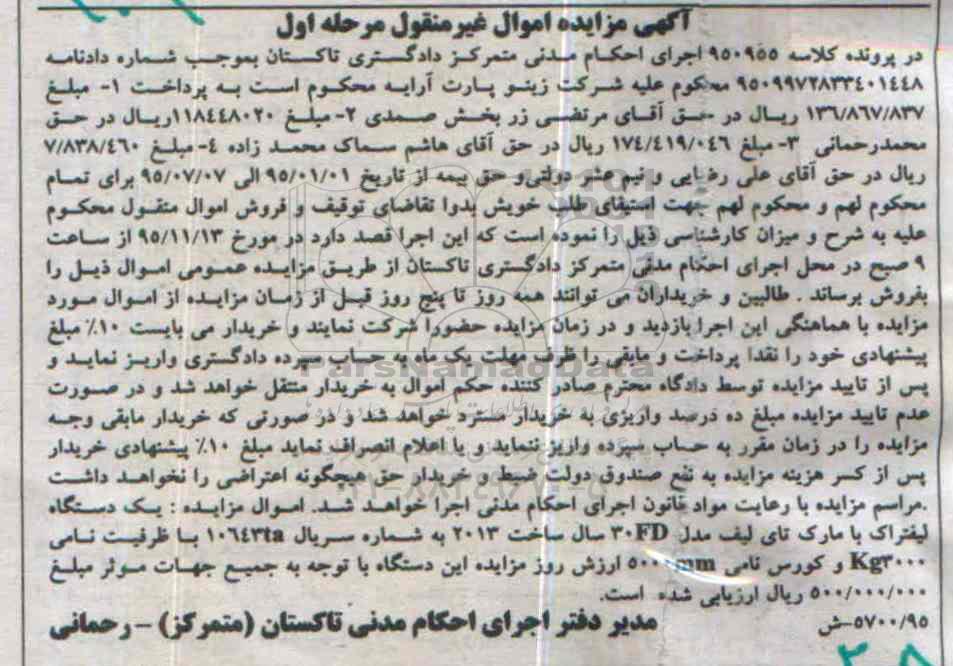 آگهی مزایده اموال غیرمنقول مرحله اول
در پرونده کلاسه ۹۵۰۹۵۵ اجرای احکام مدنی متمرکز دادگستری تاکستان بموجب شماره دادنامه
۹۵۰۹۹۷۲۸۳۳٤۰۱٤٤۸ محکوم علیه شرکت زینو پارت آرایه محکوم است به پرداخت ۱- مبلغ
۱۳٦/۸٦۷/۸۳۷ ریال در حق آقای مرتضی زر بخش صمدی ۲- مبلغ ۱۱۸٤٤۸۰۲۰ریال در حق
محمدرحمانی ۳- مبلغ ۱۷٤/٤۱۹/۰٤٦ ریال در حق آقای هاشم سماک محمد زاده ٤- مبلغ ۷/۸۳۸/٤٦۰
ریال در حق آقای علی رضایی و نیم عشر دولتی و حق بیمه از تاریخ ۹۵/۰۱/۰۱ الی ۹۵/۰۷/۰۷ برای تمام
محکوم لهم و محکوم لهم جهت استیفای طلب خویش بدوا تقاضای توقیف و فروش اموال منقول محکوم
علیه به شرح و میزان کارشناسی ذیل را نموده است که این اجرا قصد دارد در مورخ ۹۵/۱۱/۱۳ از ساعت
۹ صبح در محل اجرای احکام مدنی متمرکز دادگستری تاکستان از طریق مزایده عمومی اموال ذیل را
بفروش برساند . طالبین و خریداران می توانند همه روز تا پنج روز قبل از زمان مزایده از اموال مورد
مزایده با هماهنگی این اجرا بازدید و در زمان مزایده حضورا شرکت نمایند و خریدار می بایست ۱۰٪ مبلغ
پیشنهادی خود را نقدا پرداخت و مابقی را ظرف مهلت یک ماه به حساب سپرده دادگستری واریز نماید و
پس از تایید مزایده توسط دادگاه محترم صادر کننده حکم اموال به خریدار منتقل خواهد شد و در صورت
عدم تایید مزایده مبلغ ده درصد واریزی به خریدار مسترد خواهد شد و در صورتی که خریدار مابقی وجه
مزایده را در زمان مقرر به حساب سپرده واریز ننماید و یا اعلام انصراف نماید مبلغ ۱۰٪ پیشنهادی خریدار
پس از کسر هزینه مزایده به نفع صندوق دولت ضبط و خریدار حق هیچگونه اعتراضی را نخواهد داشت
.مراسم مزایده با رعایت مواد قانون اجرای احکام مدنی اجرا خواهد شد. اموال مزایده : یک دستگاه
لیفتراک با مارک تای لیف مدل ۳۰FD سال ساخت ۲۰۱۳ به شماره سریال ۱۰٦٤۳ta با ظرفیت نامی
Kg۳۰۰۰ و کورس نامی ۵۰۰۰mm ارزش روز مزایده این دستگاه با توجه به جمیع جهات موثر مبلغ
۵۰۰/۰۰۰/۰۰۰ ریال ارزیابی شده است.
۵۷۰۰/۹۵-ش مدیر دفتر اجرای احکام مدنی تاکستان (متمرکز) – رحمانی
ParsNamadData